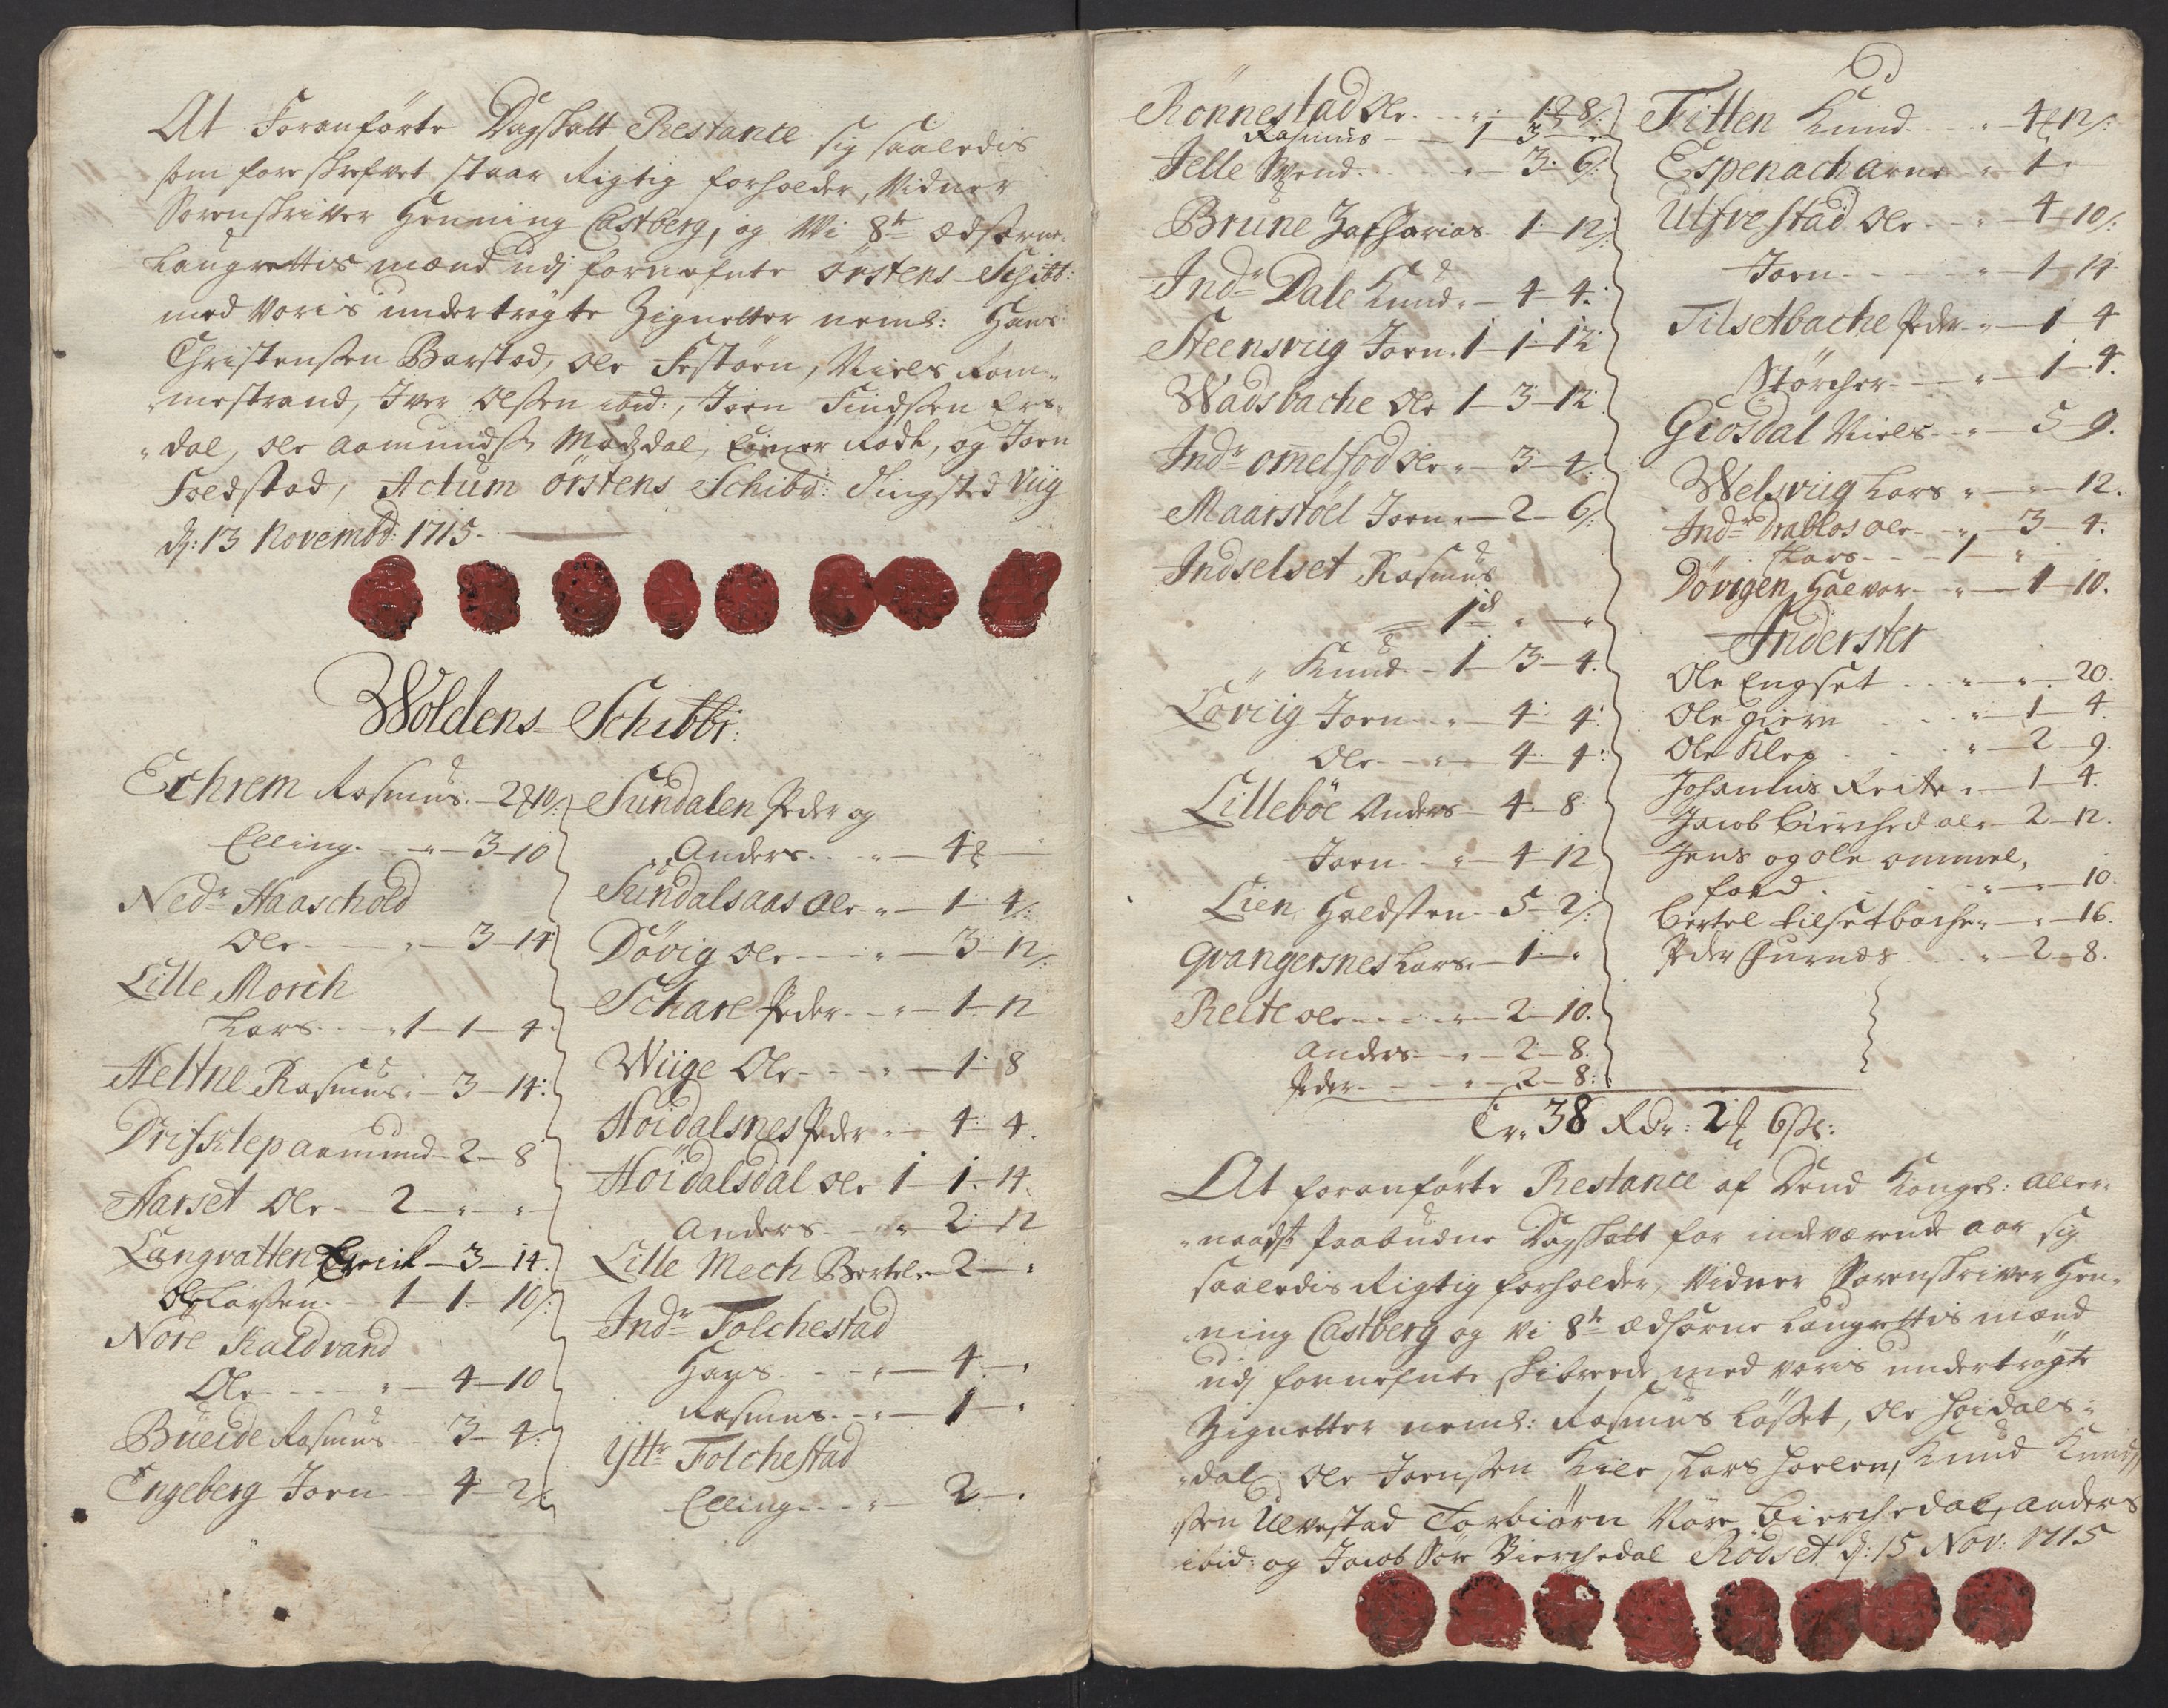 At Foranförte Dagskatt Restance sig saaledis
som foreskrefvet staar Rigtig forholder, Vidner
Sorenskriver Henning Castberg, og Wi 8te Edsorne
Laugrettis mænd udj fornefnte Örstens Schibb:
med Voris undertrögte Zignetter neml: Hans
Christensen Barstad, Ole Festöen, Niels Rom-
mestrand, Iver Olsen ibid:, Joen Findsen Ers-
dal, Ole Aamundss Mordal, Einer Rodt, og Joen
Foldstad, Actum Örstens Schibb: Tingsted Viig
d: 13 Novembr: 1715.
Woldens Schibbr:
Echrem Rasmus - 2 10
Elling - 3 - 10
Nedr Haaschold
Ole - 3 - 14
Lille Morch
Lars - 1 - 1 - 4
Heltne Rasmus - 3 - 14
Drifklep Aamund - 2 - 8
Aarset Ole - 2 - -
Langvatten - 3 - 14
Ole Larsen - 1 - 1 - 10
Nore Kaldvand
Ole - 4 - 10
Bueide Rasmus 3 - 4
Engeberg Joen - 4 - 2
Sundalen Peder og
Anders - 4
Sundalsaas Ole - 1 - 4
Dövig Ole - 3 - 12
Schare Peder - 1 - 12
Wiige Ole - 1 - 8
Höidalsnes Peder - 4 - 4
Höidalsdal Ole 1 - 1 - 14
Anders - 2 - 12
Lille Mech Bertel - 2 -
Indr Folchestad
Hans - 4 -
Rasmus - 1 -
Yttr Folchestad
Elling - 2 -
Rönnestad Ole - 1 8
Rasmus - 1 3 -
Jelle Svend - 3 - 6
Brune Zacharias - 1 - 12
Indr Dale Knud - 4 - 4
Steensviig Joen 1 - 1 - 12
Wadsbache Ole 1 - 3 - 12
Indr Omelfod Ole - 3 - 4
Maarstöel Joen - 2 - 6
Indselset Rasmus
1 - -
Knud - 1 - 3 - 4
Löviig Joen - 4 - 4
Ole - 4 - 4
Lilleböe Anders - 4 - 8
Joen - 4 - 12
Lien Holdsten - 5 - 2
Qvangersnes Lars - 1 -
Reite Ole - 2 - 10
Anders - 2 - 8
Peder - 2 - 8
Er 38 Rdr: 2 6 s:
Titten Knud - 4 12
Espenach Arne - 1 -
Ulfvestad Ole - 4 - 10
Joen - 1 - 14
Tilsetbache Peder - 1 - 4
Störcher - 1 - 4
Giosdal Niels - 5 - 9
Welsviig Lars - - 12
Indr Drablos Ole - 3 - 4
Lars - 1 -
Dövigen Halvor - 1 - 10
Inderster
Ole Engset - - 20
Ole Giern - 1 - 4
Ole Klep - 2 - 9
Johannis Reite - 1 - 4
Jacob Bierchedal - 2 - 12
Jens og Ole Ommel,
food - - 10
Bertel Tilsetbache - - 16
Peder Furnes - 2 - 8
At foranförte Restance af Dend Kongel: Aller-
naadst Paabudne Dagskatt for indværende Aar sig
saaledis Rigtig forholder, Vidner Sorenskriver Hen-
ning Castberg og Vi 8te Edsorne Laugrettis mænd
udj fornefnte skibrede, med voris undertrögte
Zignetter neml: Rasmus Löset, Ole Höidals-
dal, Ole Joensen Kile, Lars Hoelen, Knud Knud-
sen Ulvestad Torbiörn Nöre Bierchedal, Anders
ibid: og Jacob Sör Bierchedal Rödset d: 15 Nov: 1715